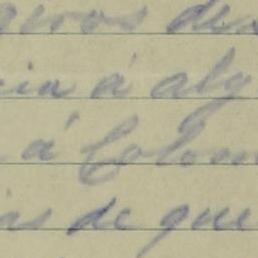 geros de
cia á alg
á Colom
as de que